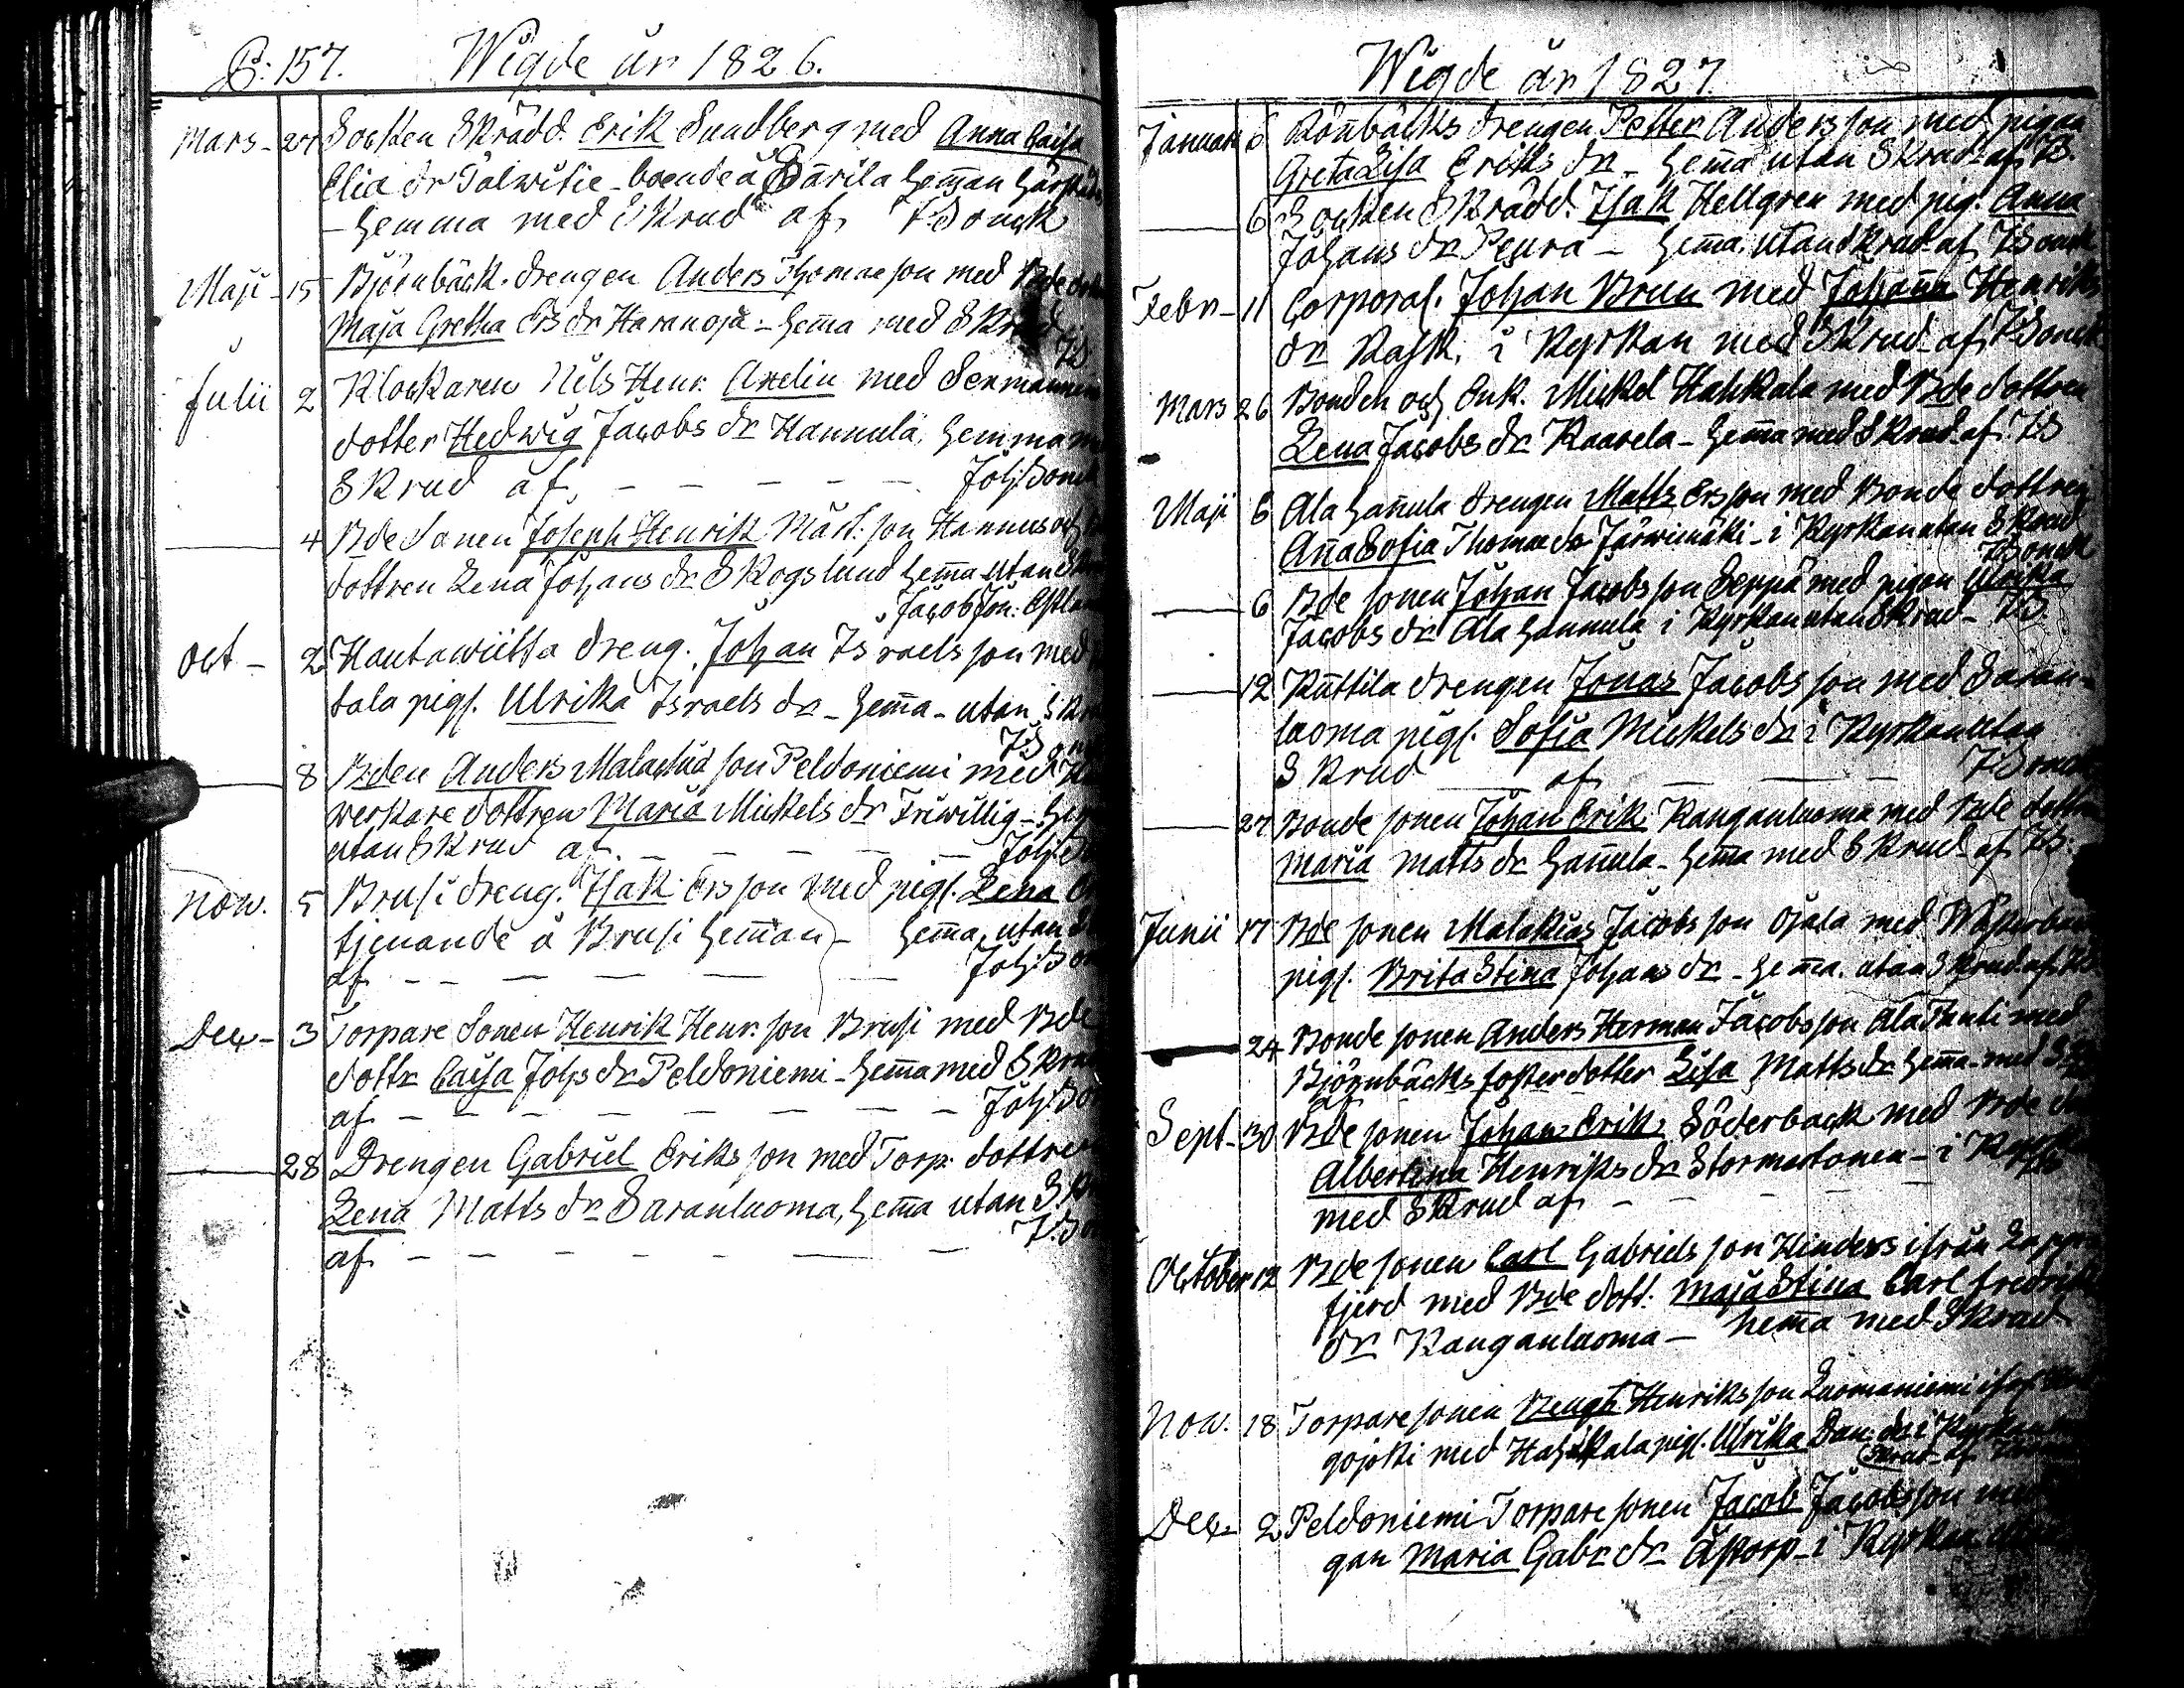 P: 157. Wigde år 1826.
Mars - 27 Socken Skrädd. Erik Sundberg med Anna Caisa
Elia dr Talwitie - boende å Pärila hemman
- hemma med Skrud af J Bonck
Maji - 15 Björnbäck. drengen Anders Thomae son med Bde
Maja Gretha Ers dr Haranoja - hem̄a med Skrud
JB
Julii 2 Klockaren Nils Henr. Axelin med Sexmannen
dotter Hedwig Jacobs dr Hannula, hemma
Skrud af - - - - - Joh: Bonck
4 Bde Sonen Joseph Henrik Mårt. son Hannus och
dottren Lena Johans dr Skogslund hem̄a utan
Jacob Joh: Estlan
Oct - 2 Hautawiitta dreng. Johan Israels son med
tala pigs. Ulrika Israels dr - hem̄a - utan Skr
JB
8 Bden Anders Malachia son Peldoniemi med
werkare dottren Maria Mickels dr Friwillig -
utan Skrud af. - - - - - Joh:
Now. 5 Brusi dreng. Isak Ers son med pigs. Lena
tjenande å Brusi hem̄an - hem̄a, utan
af - - - - - Joh: Bon
Dec - 3 Torpare Sonen Henrik Henr. son Brusi med Bde
dottr Caisa Johs dr Peldoniemi - hem̄a med Skrud
af - - - - - - - - Joh: Bon
28 Drengen Gabriel Eriks son med Torp. dottren
Lena Matts dr Saranluoma, hem̄a utan Skr
af - - - - - - - J. Bon
Wigde år 1827
Januari 6 Rön̄bäcks drengen Petter Anders son med pigan
Greta Lisa Eriks dr - hem̄a utan Skrud af JB.
6 Socken Skrädd. Isak Hellgren med pig. Anna
Johans dr Peura - hem̄a. utan Skrud af J Bonck
Febr - 11 Corporal. Johan Brun med Johan̄a Henriks
dr Rask, i Kyrkan med Skrud - af J Bonck
Mars 26 Bonden och Enk. Mickel Hahkala med Bde dottren
Lena Jacobs dr Kaarela - hem̄a med Skrud af. JB
Maji 6 Ala han̄ula drengen Matts Ers son med Bonde dottren
An̄a Sofia Thomae dr Järwimäki - i Kyrkan utan Skrud
J Bonck
6 Bde sonen Johan Jacobs son Seppä med pigan Ulrika
Jacobs dr Ala hannula i Kyrkan utan Skrud - JB
12 Kuttila drengen Jonas Jacobs son med Saran-
luoma pigs. Sofia Mickels dr i Kyrkan utan
Skrud - af - - - J Bonck
27 Bonde sonen Johan Erik Kanganluoma med Bde dottren
Maria Matts dr han̄ula - hem̄a med Skrud af JB.
Junii 17 Bde sonen Malakias Jacobs son Ojala med
pigs. Brita Stina Johans dr - hem̄a. utan Skrud. af. JB
24 Bonde sonen Anders Herman Jacobs son Ala Knuti med
Björnbäcks foster dotter Lisa Matts dr hem̄a - med
Sept - 30 Bde sonen Johan Erik Söderback med Bde
Albertina Henriks dr Stormartonen - i Kyrk
med Skrud af - - - - -
October 12 Bde sonen Carl Gabriels son Kinders ifrån Lapp-
fjerd med Bde dott: Maja Stina Carl Fredriks
dr Kanganluoma - hem̄a med Skrud
Now. 18 Torpare sonen Bengt Henriks son Luomaniemi
gojoki med Hahkala pigs. Ulrika Dan: dr i Kyrkan
Skrud - af
Dec - 2 Peldoniemi Torpare sonen Jacob Jacobs son med
gan Maria Gabr dr Åstorp - i Kyrkan